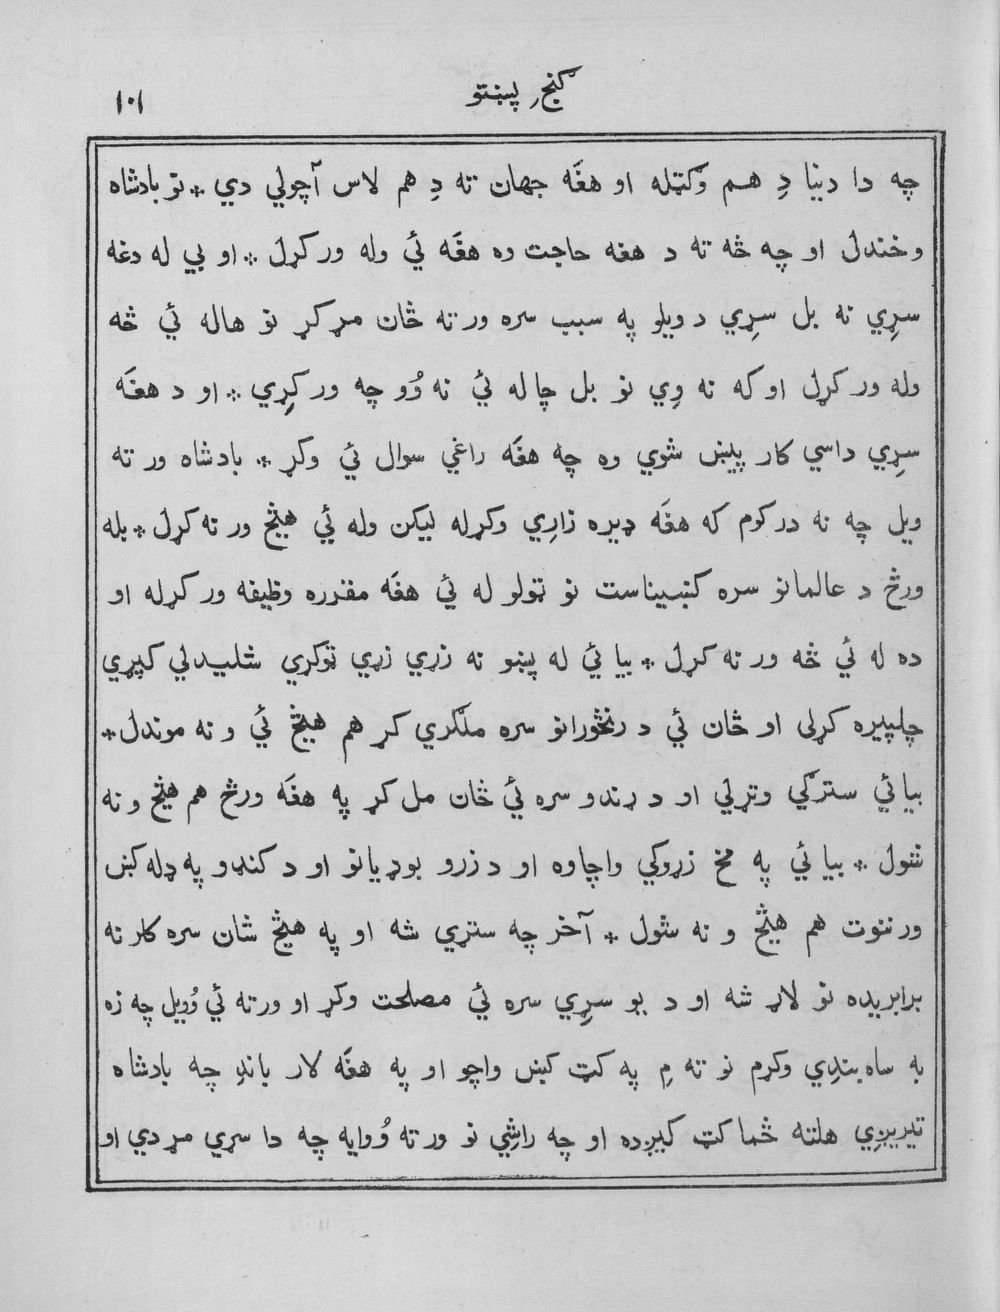 کنج پښتو
۱۰۱
چه دا دنیا دِ هم وکټله او هغَه جهان ته دِ هم لاس آچولي دي * نو بادشاه
وخندل او چه څه ته د هغه حاجت وه هغَه ئي وله ور کړل * او بي له دغه
سړِي نه بل سړِي د ویلو په سبب سره ورته ځان مړ کړ نو هاله ئي څه
وله ور کړل او که نه وِي نو بل چا له ئي نه وُو چه ور کړِي * او د هغَه
سړِي داسي کار پیښ شوي وه چه هغَه راغي سوال ئي وکړ * بادشاه ورته
ویل چه نه درکوم که هغَه ډیره زارِي وکړله لیکن وله ئي هیڅ ور نه کړل * بله
ورځ د عالمانو سره کښیناست نو ټولو له ئي هغَه مقرره وظیفه ور کړله او
ده له ئي څه ور نه کړل * بیا ئي له پښو نه زړي زړي ټوکړي شلیدلي کپړي
چاپیره کړلی او ځان ئي د رنځورانو سره ملګري کړ هم هیڅ ئي و نه موندل *
بیا ئي سترګي وتړلي او د ړندو سره ئي ځان مل کړ په هغَه ورځ هم هیڅ و نه
شول * بیا ئي په مخ زړوکي واچاوه او د زړو بوډیانو او د کنډو په ډله کښ
ور ننوت هم هیڅ و نه شول * آخر چه ستړي شه او په هیڅ شان سره کار نه
برابریده نو لاړ شه او د یو سړِي سره ئي مصلحت وکړ او ورته ئي وُویل چه زه
به ساه بندِي وکړم نو ته مِ په کټ کښ واچو او په هغَه لار باندِ چه بادشاه
تیریږِي هلته څما کټ کیږده او چه راشِي نو ورته وُوایه چه دا سړي مړ دي او